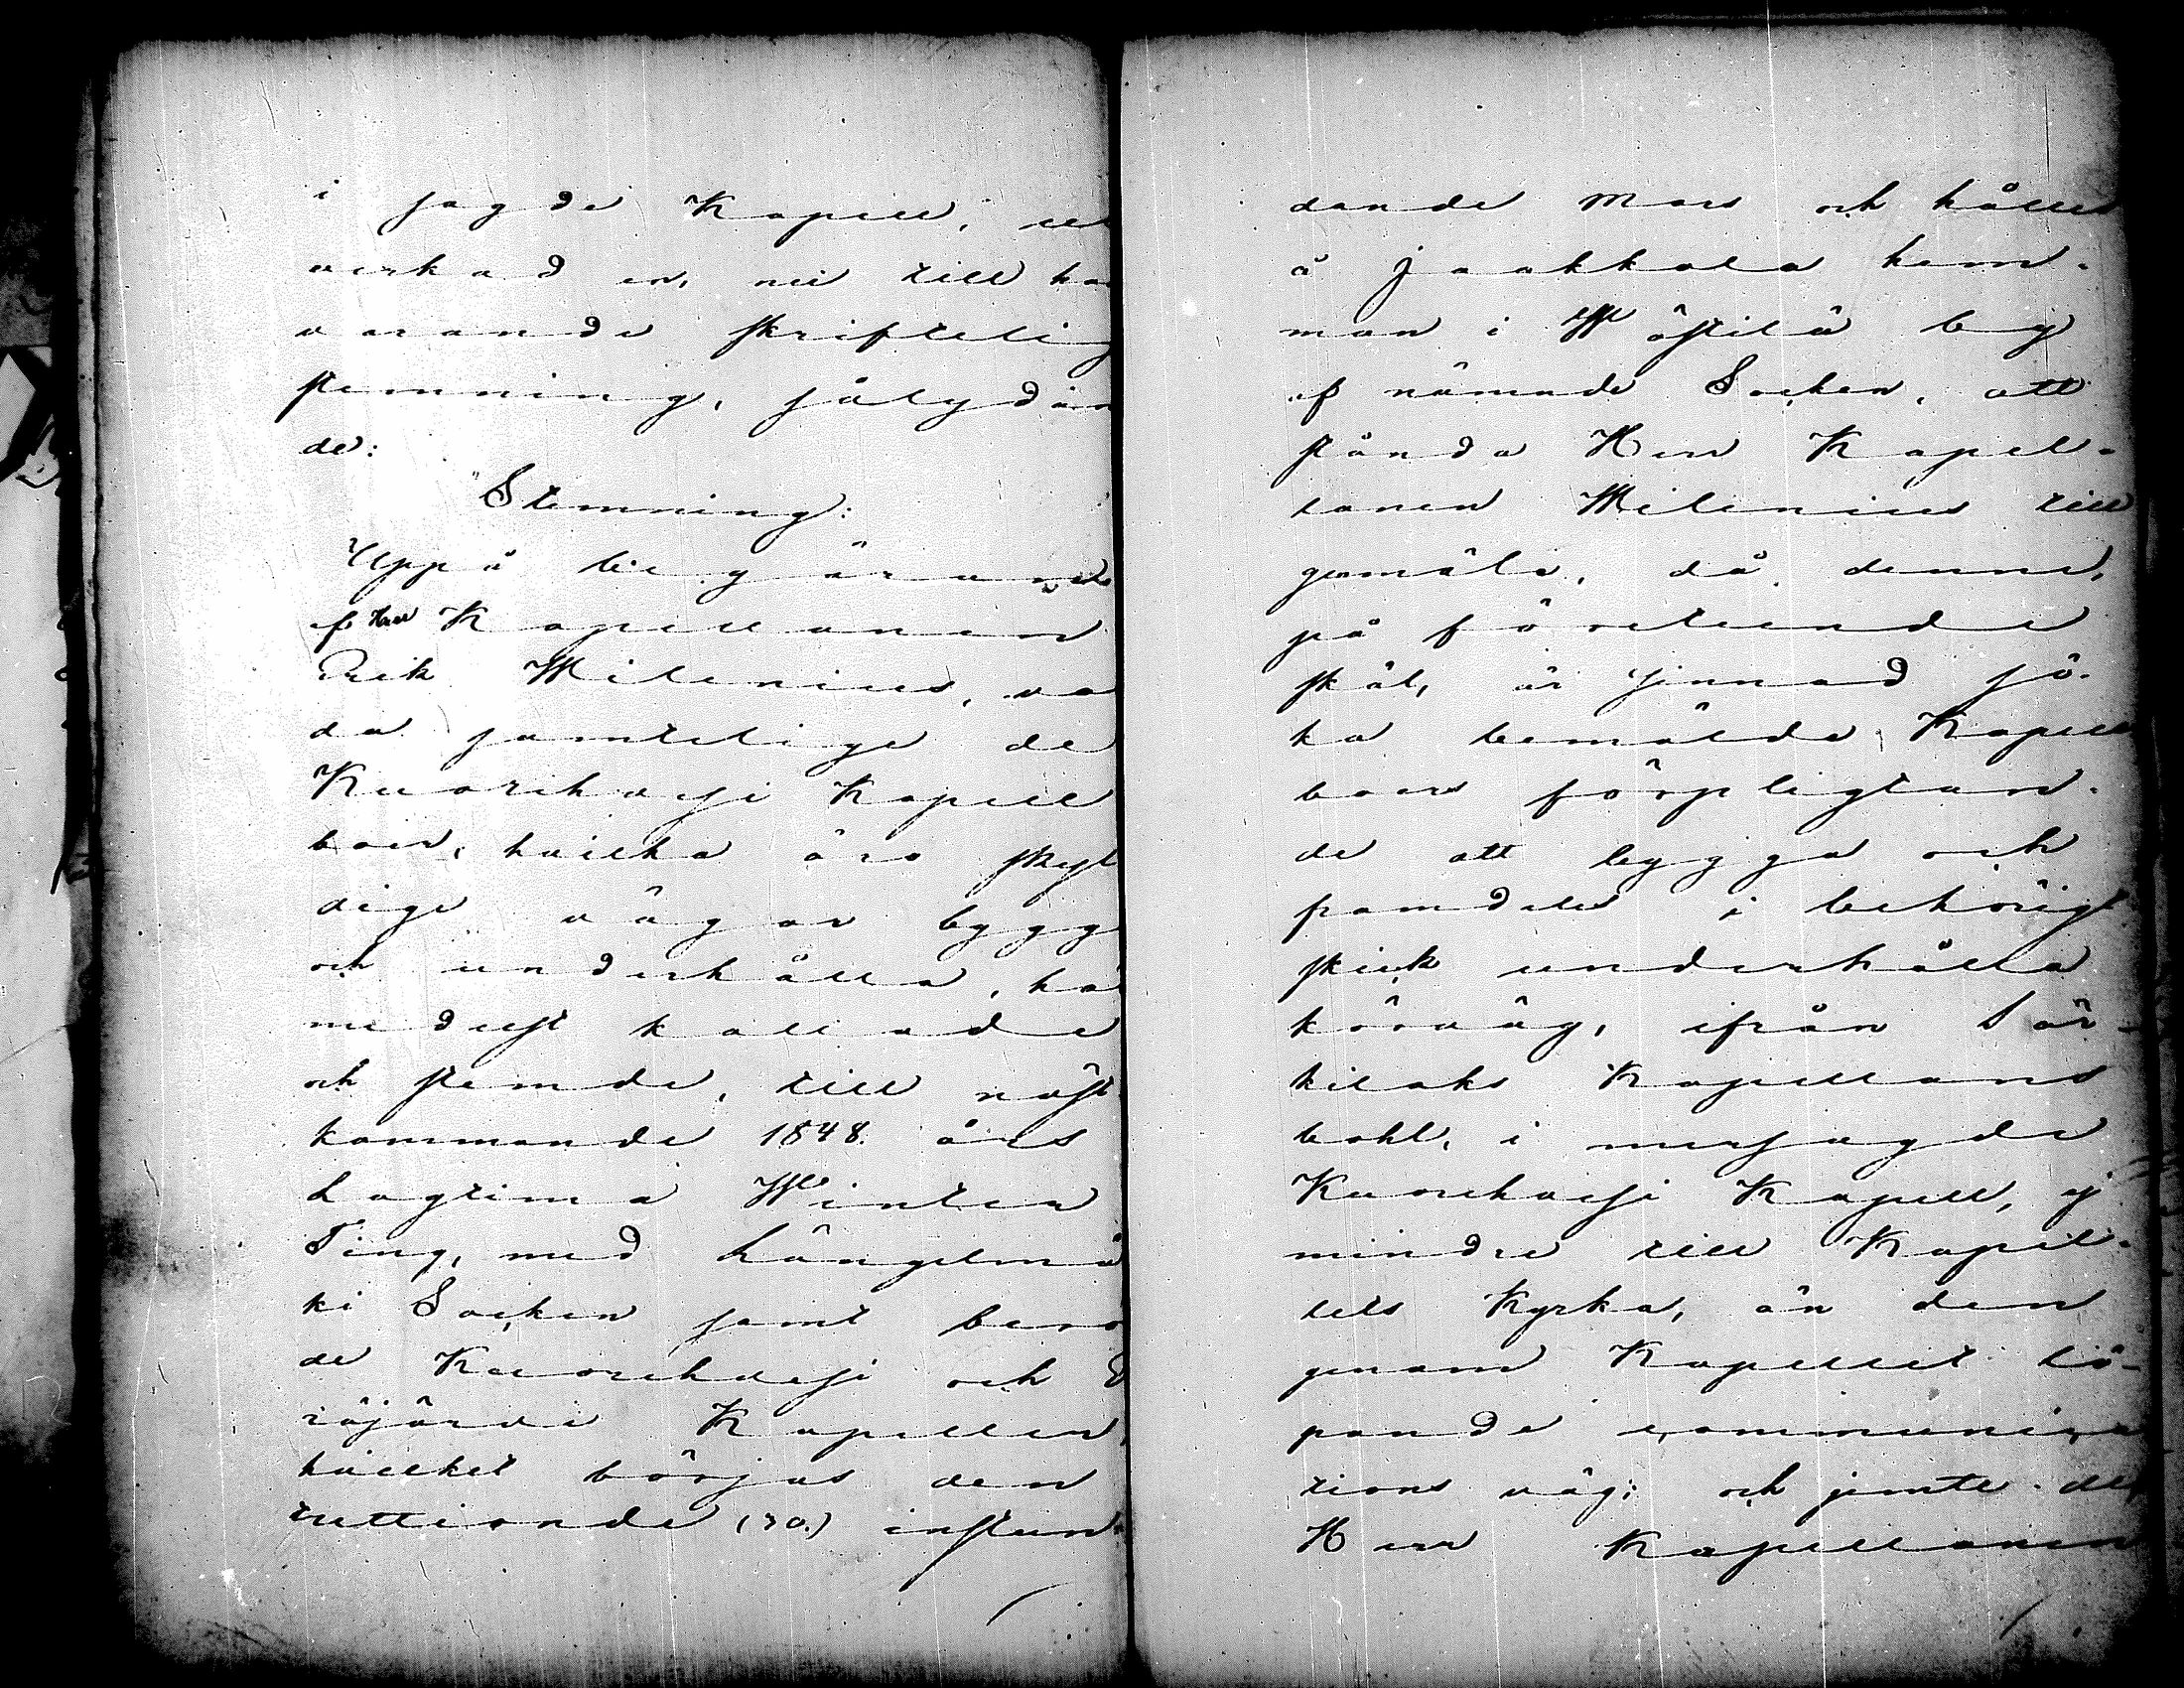 i sagde Kapell, ut
verkad en, nu till ha
varande skriftelig
stemning, sålydan
de:
"Stemning:
Uppå begäran
af Herr Kapellanen
Erik Wilenius, va
da samtelige de
Kuorehvesi Kapell
boer, hvilka äro skyl
dige vägar bygg
och underhålla, hä
medelst kallade
och stemde, till näst
kommande 1848 års
Lagtima Winter
Ting, med Längelmä
ki Socken samt bero
de Kuorehvesi och E
räjärvi Kapeller,
hvilket börjas den
trettionde (30.) instun-
dande Mars och hålles
å Jaakkola hem-
man i Wästilä by
af nämnde Socken, att
stånda Herr Kapel-
lanen Wilenius till
genmäle, då denne,
på företeende
skäl, är sinnad sö-
ka bemälde Kapell
boers förpligtan-
de att bygga och
framdeles i behörigt
skick underhålla
körväg, ifrån Sär-
kilaks Kapellans
bohl, i mersagde
Kuorehvesi Kapell, ej
mindre till Kapel-
lets Kyrka, än den
genom Kapellet lö-
pande communica
tions väg; och jemte det
Herr Kapellanen